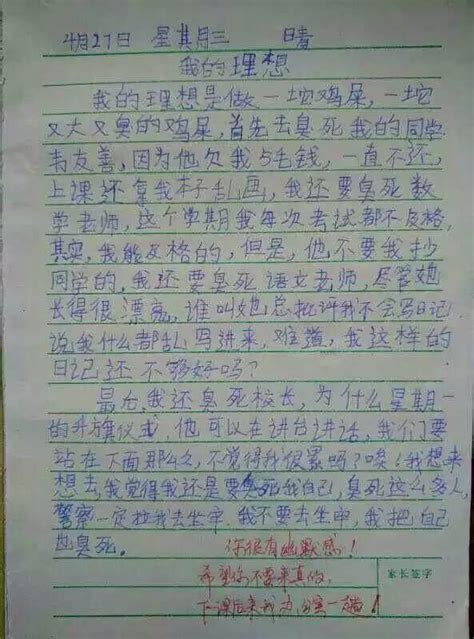 4月27日 星其月三 晴
我的理想
我的理想是做一坨鸡屎,一坨
又大又臭的鸡屎,首先去臭死我的同学
韦友善,因为他欠我5毛钱,一直不还,
上课还拿我本子乱画,我还要臭死数
学老师,这个学期我每次考试都不及格,
其实,我能及格的,但是,他不要我抄
同学的,我还要臭死语文老师,尽管她
长得很漂亮,谁叫她总批评我不会写日记
说我什么都乱写进来,难道,我这样的
日记还不够好吗?
最后,我还臭死校长,为什么星期一
的升旗仪式,他可以在讲台讲话,我们要
站在下面那么久,不觉得我很累吗?唉!我想来
想去,我觉得我还是要臭死我自己,臭死这么多人,
警察一定拉我去坐牢,我不要去坐牢,我把自己
也臭死。 你很有幽默感!
希望你不要来真的,
下课后来我办公室一趟!
家长签字